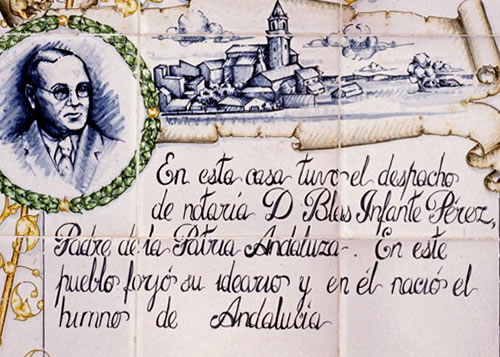 En esta casa tuvo el despacho
de notaría D Blas Infante Pérez,
Padre de la Patria Andaluza. En este
pueblo forjó su ideario y en él nació el
himno de Andalucía